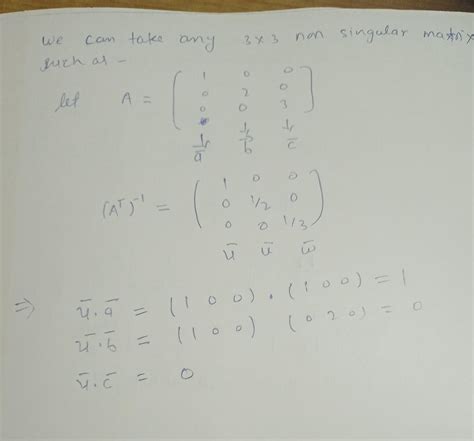 we can take any 3x3 non singular matrix
such as -
let A = ( 1 0 0
0 2 0
0 0 3 )
ā b̄ c̄
(Aᵀ)⁻¹ = ( 1 0 0
0 1/2 0
0 0 1/3 )
ū ū w̄
⇒ ū.ā = (1 0 0) . (1 0 0) = 1
ū.b̄ = (1 0 0) (0 2 0) = 0
ū.c̄ = 0